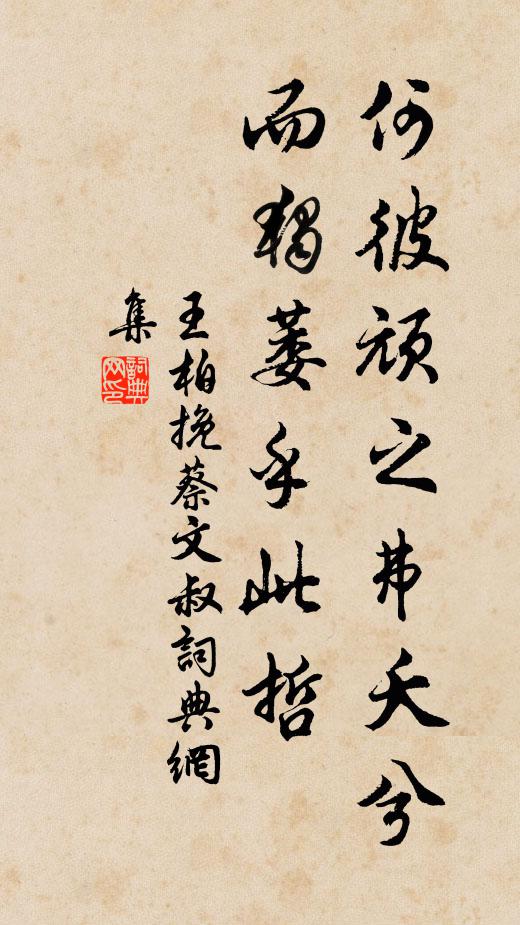 何彼頑之弗夭兮
而獨萎乎此哲
王柏挽蔡文叔詞典網
集
詞典
网印